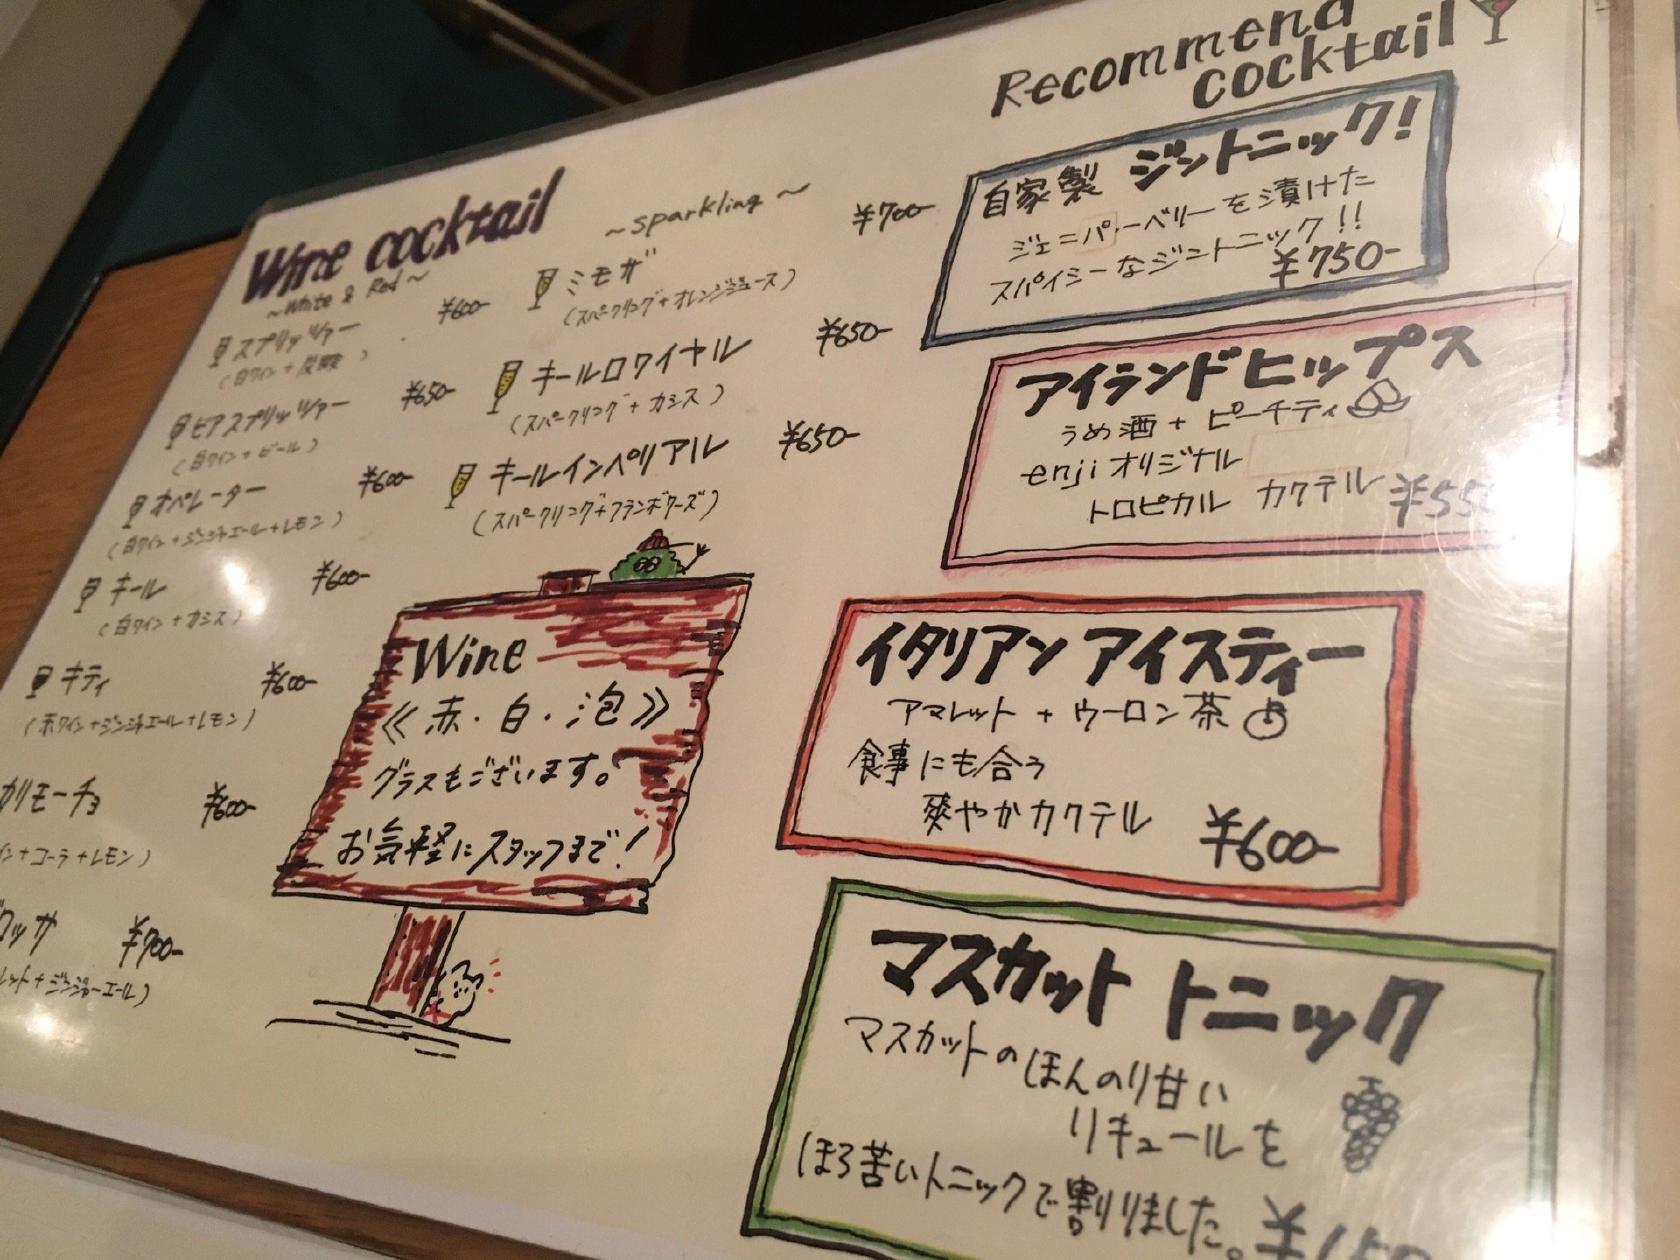 Wine cocktail
~White & Red~
スプリッツァー ¥600-
(白ワイン+炭酸)
ビアスプリッツァー ¥650-
(白ワイン+ビール)
オペレーター ¥600-
(白ワイン+ジンジャエール+レモン)
キール ¥600-
(白ワイン+カシス)
キティ ¥600-
(赤ワイン+ジンジャエール+レモン)
カリモーチョ ¥600-
イン+コーラ+レモン)
¥700-
レット+ジンジャーエール)
~sparkling~
ミモザ ¥700-
(スパークリング+オレンジジュース)
キールロワイヤル ¥650-
(スパークリング+カシス)
キールインペリアル ¥650-
(スパークリング+フランボワーズ)
Wine
《赤・白・泡》
グラスもございます。
お気軽にスタッフまで!
Recommend
cocktail
自家製 ジントニック!
ジェニパーベリーを漬けた
スパイシーなジントニック!!
¥750-
アイランドヒップス
うめ酒+ピーチティ
enjiオリジナル
トロピカル カクテル ¥55
イタリアン アイスティー
アマレット+ウーロン茶
食事にも合う
爽やかカクテル ¥600-
マスカット トニック
マスカットのほんのり甘い
リキュールを
ほろ苦いトニックで割りました。